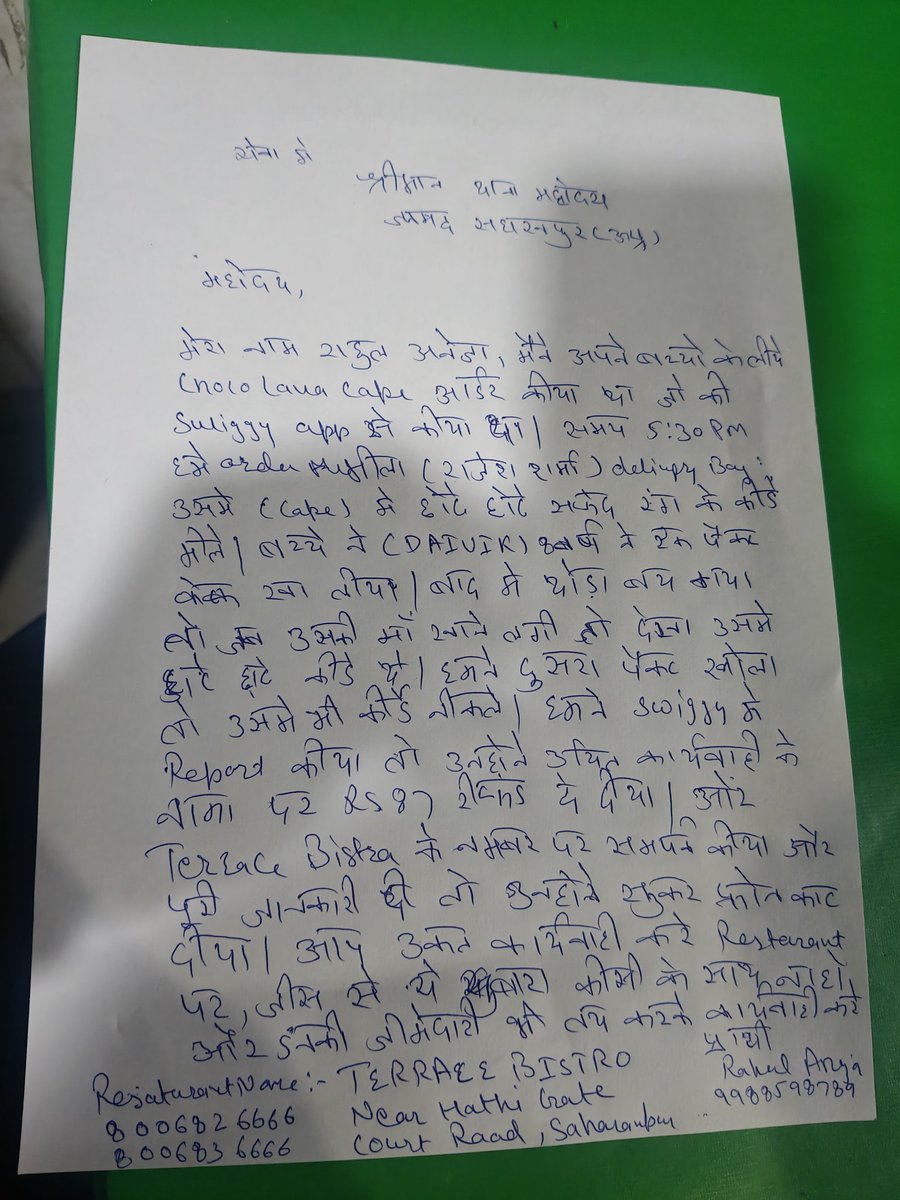 सेवा मे
श्रीमान थाना महोदय
जनपद सहारनपुर (उप्र)
महोदय,
मेरा नाम राहुल अनेजा, मैने अपने बच्चो के लीये
Choco Lava Cake आर्डर कीया था जो की
Swiggy app से कीया था। समय 5:30 PM
हमे order मीला (राजेश शर्मा) delivery Boy
उसमे (Cake) मे छोटे छोटे सफेद रंग के कीडे
मीले। बच्चे ने (DAIVIK) 8 वर्ष ने एक पैकट
केक खा लीया। बाद मे थोड़ा बच गया
तो उसकी माँ खाने लगी तो देखा उसमे
छोटे छोटे कीडे थे। हमने दुसरा पैकट खोला
तो उसमे भी कीडे नीकले। हमने swiggy मे
Report कीया तो उनहोने उचित कार्यवाही के
नामा पर RS 87 रीफन्ड दे दीया। और
Terrace Bistra के नमबर पर समपर्क कीया और
पुरी जानकारी दी तो उनहोने सुनकर फ़ोन काट
दीया। आप उकत कार्यवाही करे Restarant
पर, जीस से ये दुबारा कीसी के साथ ना हो,
और इनकी जीमेदारी भी तय करके कार्यवाही करे
प्रार्थी
Restaurant Name :- TERRACE BISTRO
Near Hathi Gate
Court Raad, Saharanpur
8006826666
8006836666
Rahul Aneja
9988598789